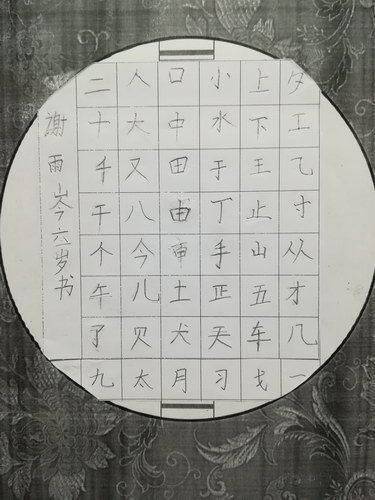 夕工乙寸从才几一
上下王止山五车戈
小水于丁手正天习
口中田由土犬月
人大又八今儿贝太
二十千干个午了九
謝雨岑六岁书